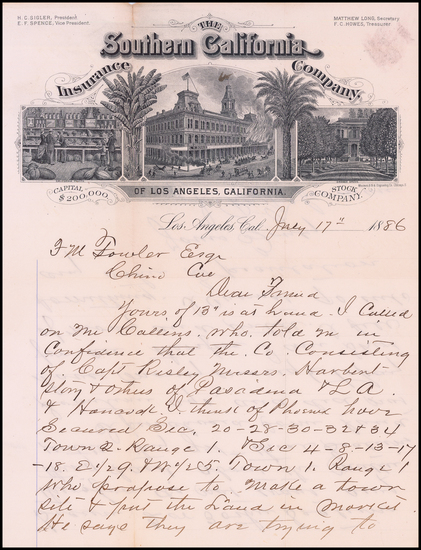 H. G. SIGLER, President
E. F. SPENCE, Vice President
MATTHEW LONG, Secretary
F. C. HOWES, Treasurer
THE
Southern California
Insurance Company,
OF LOS ANGELES, CALIFORNIA.
CAPITAL $200,000.
STOCK COMPANY.
Los Angeles, Cal. July 17th 1886
F M Fowler Esqr
Chino Cal
Dear Friend
Yours of 13th is at hand. I Called
on Mr Collins. who told me in
Confidence that the Co. Consisting
of Capt Risley Messrs. Harbert
Story & others of Pasadena & L A
& Hancock I think of Phoenix have
Secured Sec. 20-28-30-32 & 34
Town 2. Range 1. & Sec 4-8-13-17
-18. E 1/2 9. & W 1/2 5. Town 1. Range 1
Who propose to Make a town
site & put the Land in Market
He says they are trying to